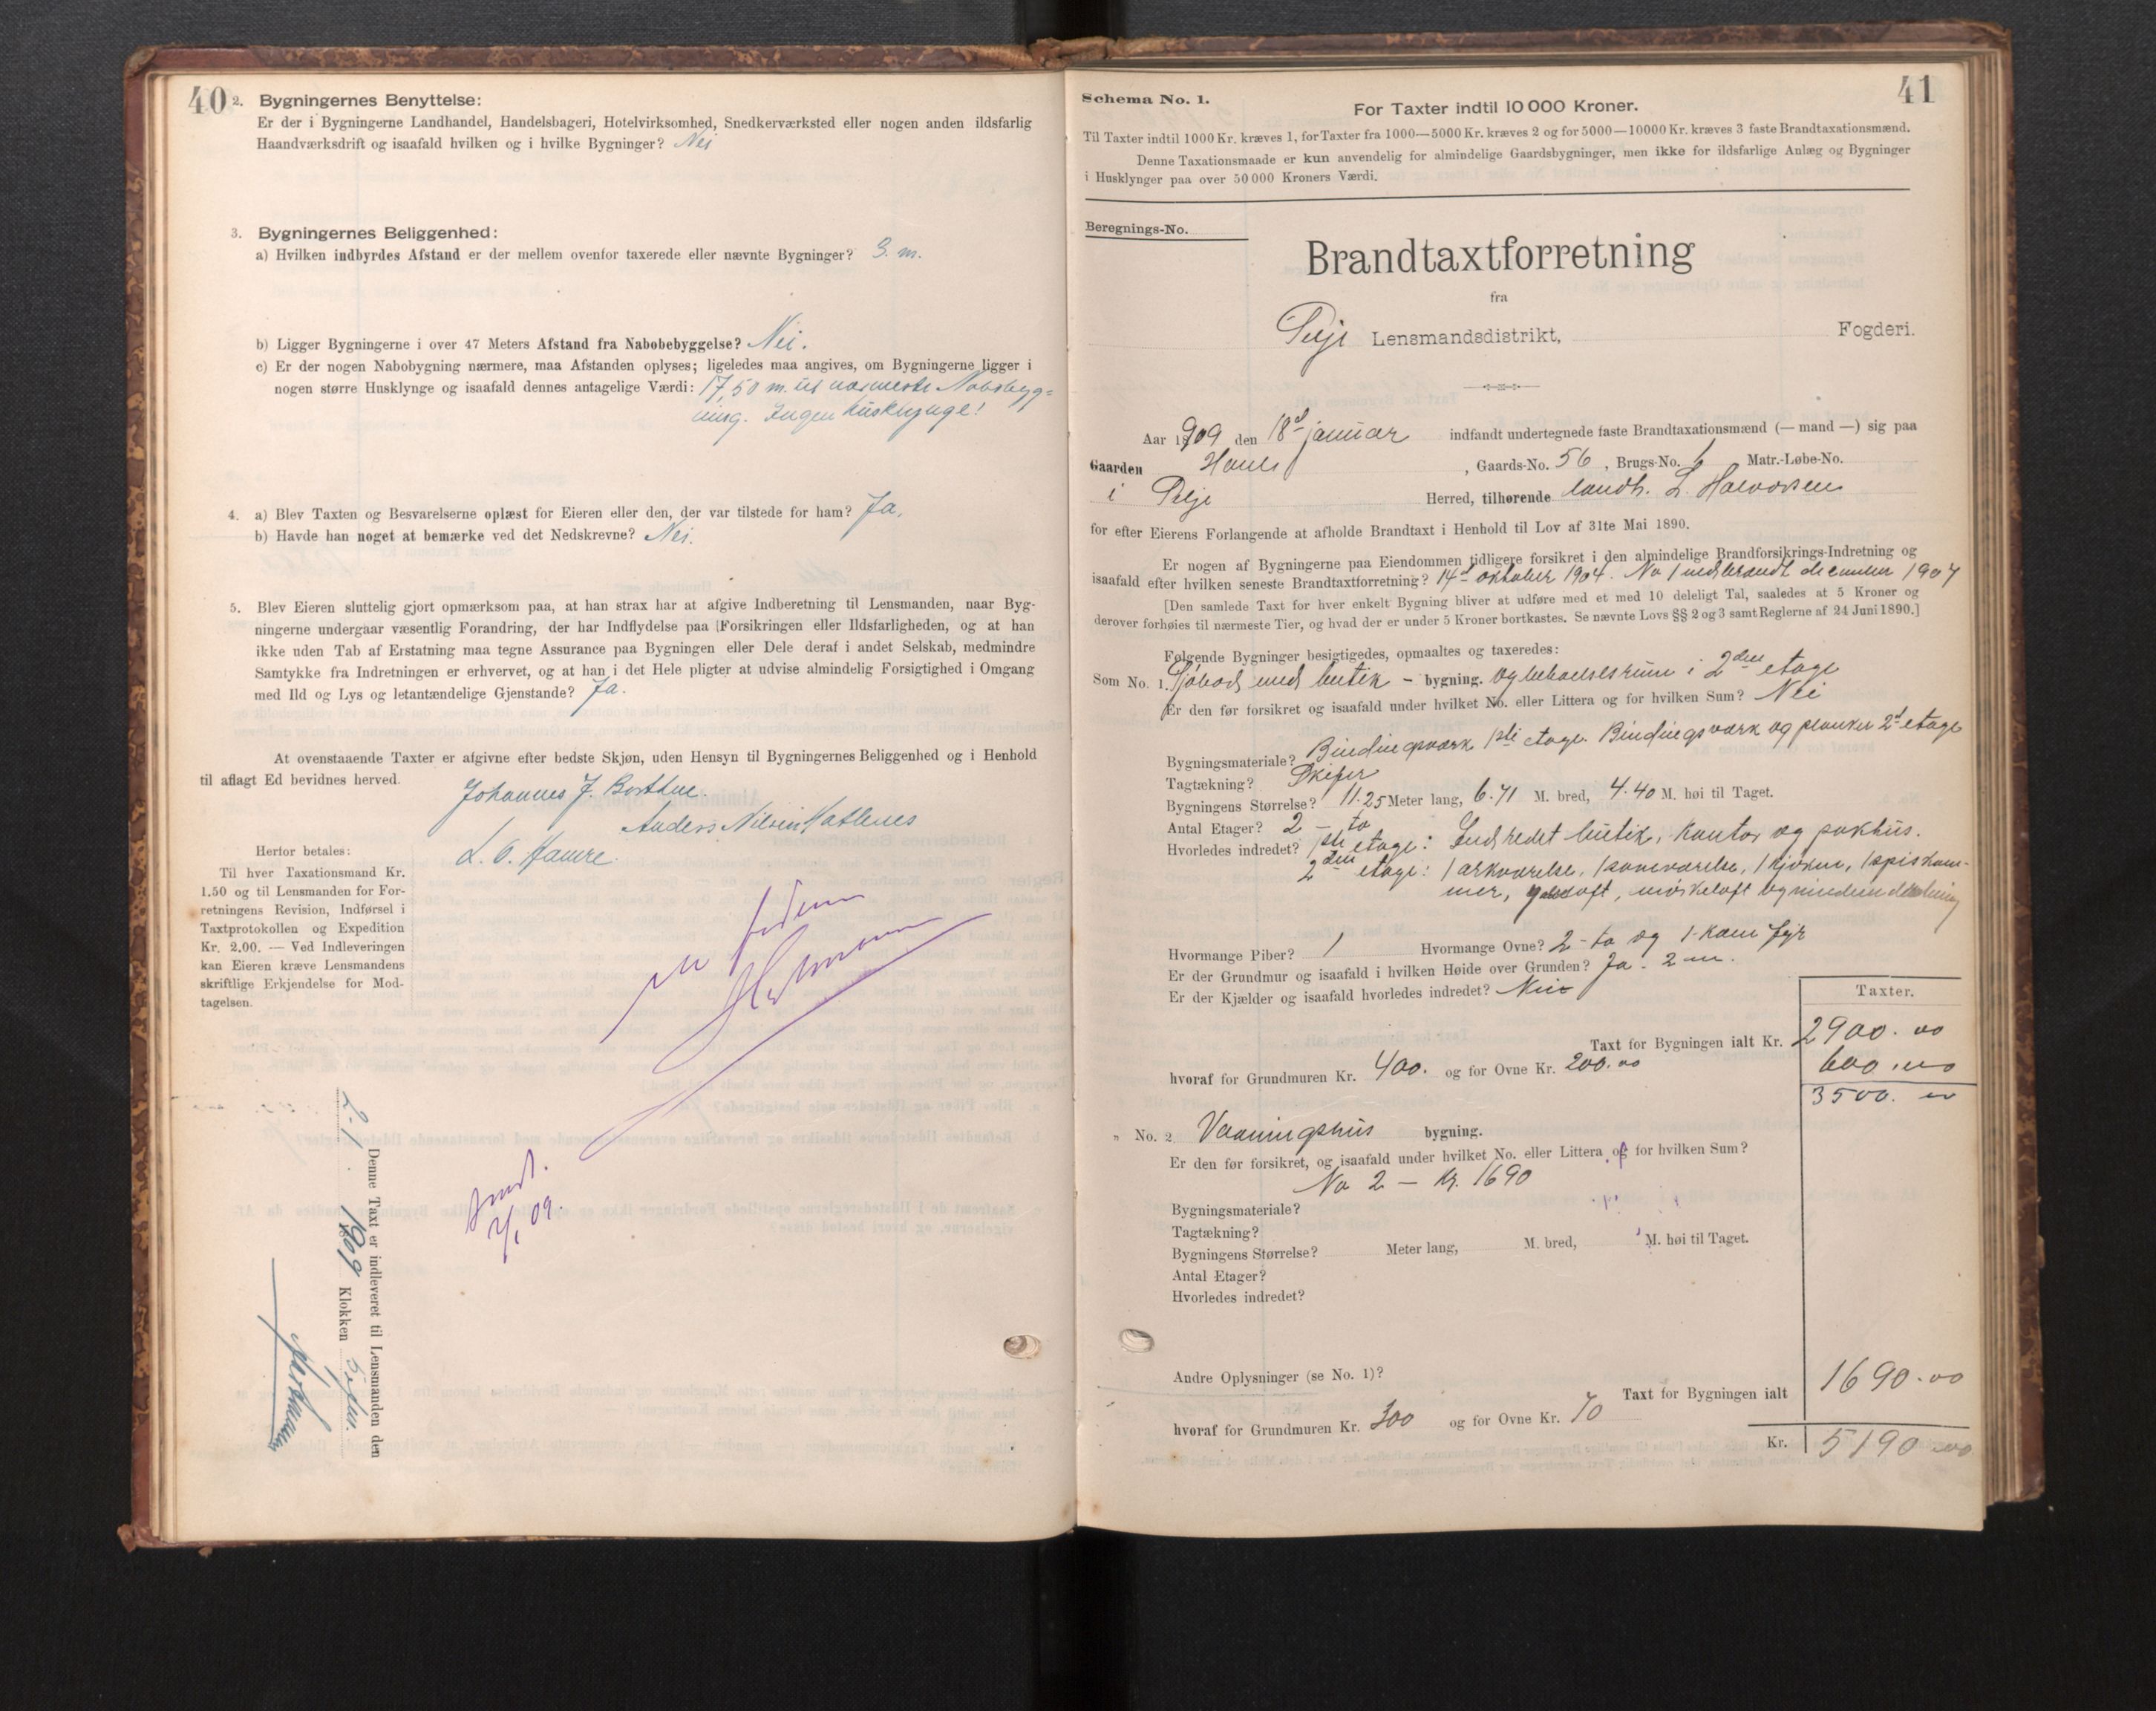 40
2. Bygningernes Benyttelse:
Er der i Bygningerne Landhandel, Handelsbageri, Hotelvirksomhed, Snedkerværksted eller nogen anden ildsfarlig
Haandværksdrift og isaafald hvilken og i hvilke Bygninger? Nei
3. Bygningernes Beliggenhed:
a) Hvilken indbyrdes Afstand er der mellem ovenfor taxerede eller nævnte Bygninger? 3. m.
b) Ligger Bygningerne i over 47 Meters Afstand fra Nabobebyggelse? Nei.
c) Er der nogen Nabobygning nærmere, maa Afstanden oplyses; ligeledes maa angives, om Bygningerne ligger i
nogen større Husklynge og isaafald dennes antagelige Værdi: 17,50 m. til nærmeste Nabobyg=
ning. Ingen husklynge!
4. a) Blev Taxten og Besvarelserne oplæst for Eieren eller den, der var tilstede for ham? Ja,
b) Havde han noget at bemærke ved det Nedskrevne? Nei.
5. Blev Eieren sluttelig gjort opmærksom paa, at han strax har at afgive Indberetning til Lensmanden, naar Byg-
ningerne undergaar væsentlig Forandring, der har Indflydelse paa Forsikringen eller Ildsfarligheden, og at han
ikke uden Tab af Erstatning maa tegne Assurance paa Bygningen eller Dele deraf i andet Selskab, medmindre
Samtykke fra Indretningen er erhvervet, og at han i det Hele pligter at udvise almindelig Forsigtighed i Omgang
med Ild og Lys og letantændelige Gjenstande? Ja.
At ovenstaaende Taxter er afgivne efter bedste Skjøn, uden Hensyn til Bygningernes Beliggenhed og i Henhold
til aflagt Ed bevidnes herved.
Johannes J.
Anders Nilsen
L. O. Hamre.
Herfor betales:
Til hver Taxationsmand Kr.
1.50 og til Lensmanden for For-
retningens Revision, Indførsel i
Taxtprotokollen og Expedition
Kr. 2.00. — Ved Indleveringen
kan Eieren kræve Lensmandens
skriftlige Erkjendelse for Mod-
tagelsen.
09.
Denne Taxt er indleveret til Lensmanden den
1909 Klokken 5
41
Schema No. 1.
For Taxter indtil 10 000 Kroner.
Til Taxter indtil 1000 Kr. kræves 1, for Taxter fra 1000—5000 Kr. kræves 2 og for 5000—10000 Kr. kræves 3 faste Brandtaxationsmænd.
Denne Taxationsmaade er kun anvendelig for almindelige Gaardsbygninger, men ikke for ildsfarlige Anlæg og Bygninger
i Husklynger paa over 50 000 Kroners Værdi.
Beregnings-No.
Brandtaxtforretning
fra
Selje Lensmandsdistrikt, Fogderi.
Aar 1909 den 18d januar indfandt undertegnede faste Brandtaxationsmænd (— mand —) sig paa
Gaarden , Gaards-No. 56, Brugs-No. 1 Matr.-Løbe-No.
i Selje Herred, tilhørende landh. L. Halvorsen
for efter Eierens Forlangende at afholde Brandtaxt i Henhold til Lov af 31te Mai 1890.
Er nogen af Bygningerne paa Eiendommen tidligere forsikret i den almindelige Brandforsikrings-Indretning og
isaafald efter hvilken seneste Brandtaxtforretning? 14d oktober 1904. No 1 nedbrændt december 1907
[Den samlede Taxt for hver enkelt Bygning bliver at udføre med et med 10 deleligt Tal, saaledes at 5 Kroner og
derover forhøies til nærmeste Tier, og hvad der er under 5 Kroner bortkastes. Se nævnte Lovs §§ 2 og 3 samt Reglerne af 24 Juni 1890.]
Følgende Bygninger besigtigedes, opmaaltes og taxeredes:
Som No. 1. Sjøbod med butik – bygning. og beboelsesrum i 2den etage
Er den før forsikret og isaafald under hvilket No. eller Littera og for hvilken Sum? Nei
Bygningsmateriale? Bindingsværk 1ste etage. Bindingsværk og planker 2d etage
Tagtækning? Skifer
Bygningens Størrelse? 11.25 Meter lang, 6.71 M. bred, 4.40 M. høi til Taget.
Antal Etager? 2 – to
Hvorledes indredet? 1ste etage: Indredet butik, kontor og pakhus.
2den etage: 1 arkværelse, 1 soveværelse, 1 kjøken, 1 spiskam-
mer, mørkeloft
Hvormange Piber? 1 Hvormange Ovne? 2 – to og 1 komfyr
Er der Grundmur og isaafald i hvilken Høide over Grunden? Ja. 2 m.
Er der Kjælder og isaafald hvorledes indredet? Nei
Taxter.
Taxt for Bygningen ialt Kr. 2900. 00
hvoraf for Grundmuren Kr. 400. og for Ovne Kr. 200.00 600.00
3500. 00
" No. 2 Vaaningshus bygning.
Er den før forsikret, og isaafald under hvilket No. eller Littera, og for hvilken Sum?
No 2 – Kr. 1690
Bygningsmateriale?
Tagtækning?
Bygningens Størrelse? Meter lang, M. bred, M. høi til Taget.
Antal Etager?
Hvorledes indredet?
Andre Oplysninger (se No. 1)?
Taxt for Bygningen ialt 1690.00
hvoraf for Grundmuren Kr. 300 og for Ovne Kr. 70
Kr. 5190.00